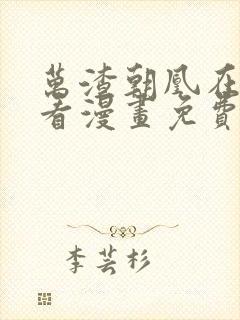 萬渣朝凰在
看漫畫免費
李芸杉